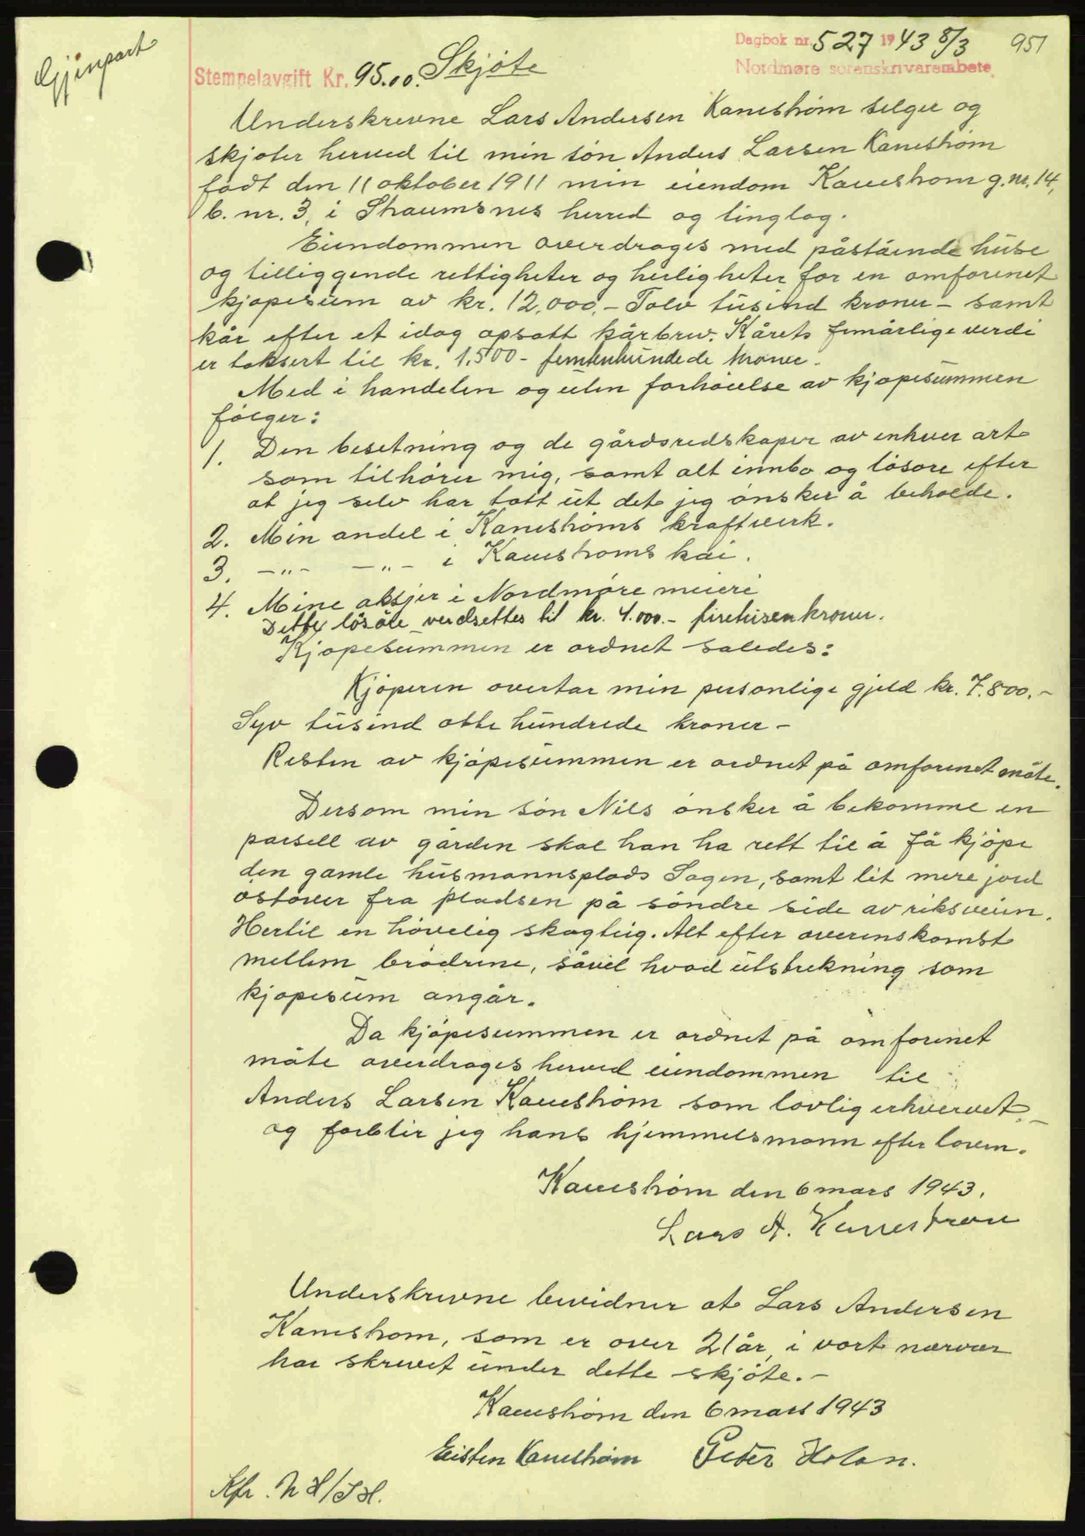 Gjenpart
Dagbok nr. 527 1943 8/3 951
Nordmøre sorenskriverembete
Stempelavgift Kr. 95.00. Skjöte
Underskrevne Lars Andersen Kanestrøm selger og
skjøter herved til min søn Anders Larsen Kanestrøm
født den 11 oktober 1911 min eiendom Kanestrøm g.nr. 14,
b. nr. 3, i Straumsnes herred og tinglag.
Eiendommen overdrages med påstående huse
og tilliggende rettigheter og herligheter for en omforenet
kjøpesum av kr. 12.000,- Tolv tusind kroner - samt
kår efter et idag opsatt kårbrev. Kårets femårlige verdi
er taksert til kr. 1.500- femtenhundede kroner.
Med i handelen og uten forhøielse av kjøpesummen
følger:
1. Den besetning og de gårdsredskaper av enhver art
som tilhører mig, samt alt innbo og løsøre efter
at jeg selv har tatt ut det jeg ønsker å beholde.
2. Min andel i Kanestrøms kraftverk.
3. -"- -"- i Kanestrøms kai.
4. Mine aksjer i Nordmøre meieri
Dette løsøre verdsettes til kr. 4.000.- firetusen kroner.
Kjøpesummen er ordnet således:
Kjøperen overtar min personlige gjeld kr. 7.800.-
Syv tusind otte hundrede kroner -
Resten av kjøpesummen er ordnet på omforenet måte.
Dersom min søn Nils ønsker å bekomme en
parsell av gården skal han ha rett til å få kjøpe
den gamle husmannsplads Sagen, samt lit mere jord
østover fra pladsen på søndre side av riksveien.
Hertil en høvelig skogteig. Alt efter overenskomst
mellem brødrene, såvel hvad utstrekning som
kjøpesum angår.
Da kjøpesummen er ordnet på omforenet
måte overdrages herved eiendommen til
Anders Larsen Kanestrøm som lovlig erhvervet -
og forblir jeg hans hjemmelsmann efter loven.
Kanestrøm den 6 mars 1943.
Lars A. Kanestrøm
Underskrevne bevidner at Lars Andersen
Kanestrøm, som er over 21 år, i vort nærvær
har skrevet under dette skjøte. -
Kanestrøm den 6 mars 1943
Eisten Kanestrøm Peder Holan.
Kfr. N H/S H.